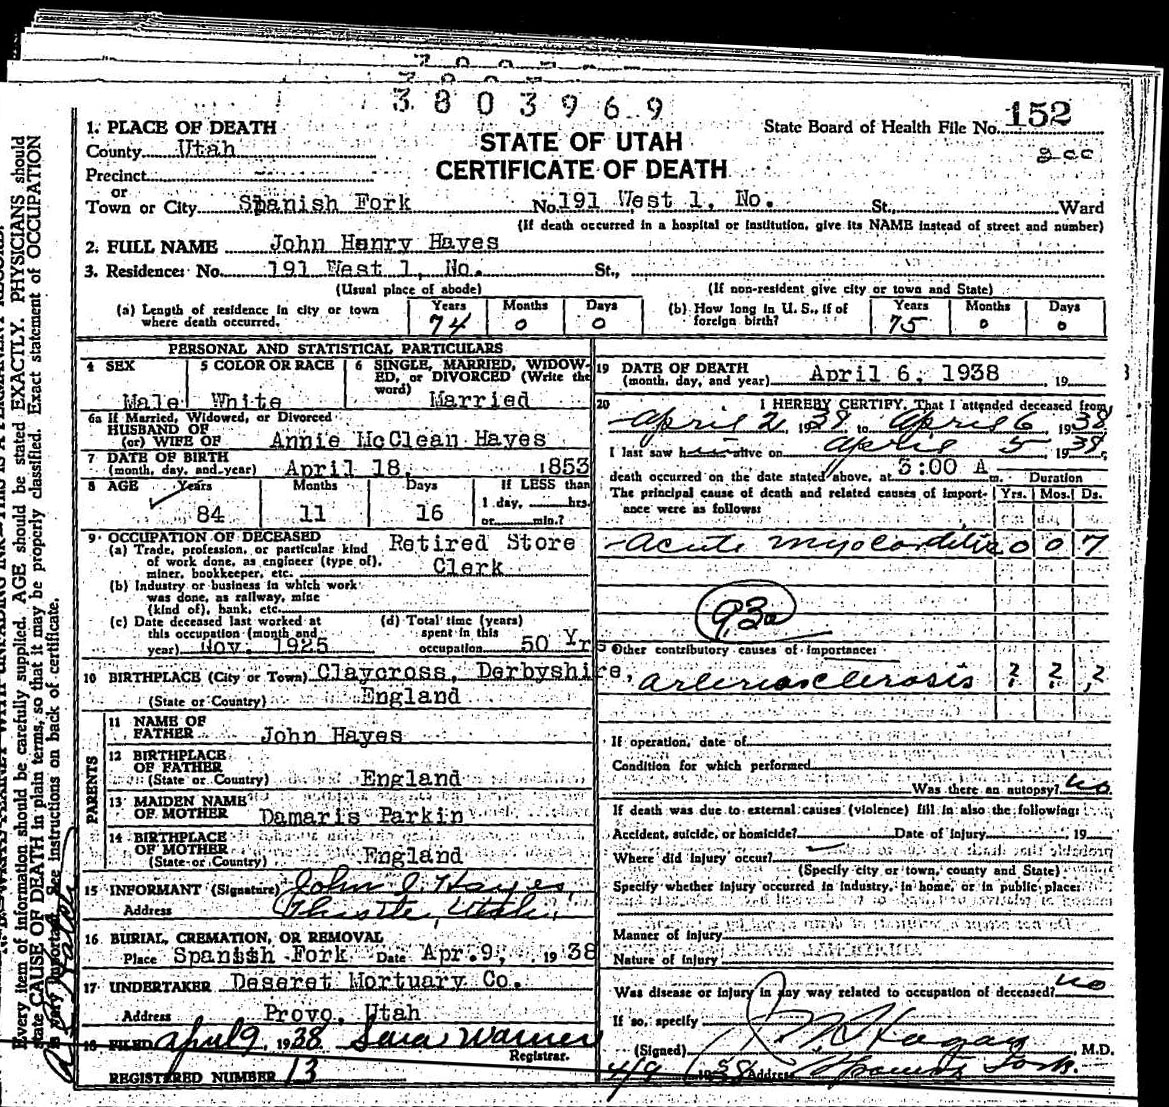 3803969
State Board of Health File No. 152
STATE OF UTAH
CERTIFICATE OF DEATH
1. PLACE OF DEATH
County Utah
Precinct
or
Town or City Spanish Fork No. 191 West 1, No. St., Ward
(If death occurred in a hospital or institution, give its NAME instead of street and number)
2. FULL NAME John Henry Hayes
3. Residence: No. 191 West 1, No. St.,
(Usual place of abode) (If non-resident give city or town and State)
(a) Length of residence in city or town where death occurred. Years 74 Months 0 Days 0
(b) How long in U. S., if of foreign birth? Years 75 Months 0 Days 0
PERSONAL AND STATISTICAL PARTICULARS
4 SEX Male
5 COLOR OR RACE White
6 SINGLE, MARRIED, WIDOWED, or DIVORCED (Write the word) Married
6a If Married, Widowed, or Divorced
HUSBAND OF
(or) WIFE OF Annie McClean Hayes
7 DATE OF BIRTH
(month, day, and year) April 18, 1853
8 AGE Years 84 Months 11 Days 16
If LESS than
1 day, hrs.
or min.?
9 OCCUPATION OF DECEASED
(a) Trade, profession, or particular kind
of work done, as engineer (type of),
miner, bookkeeper, etc. Retired Store Clerk
(b) Industry or business in which work
was done, as railway, mine
(kind of), bank, etc.
(c) Date deceased last worked at
this occupation (month and
year) Nov. 1925
(d) Total time (years)
spent in this
occupation 50 Yrs
10 BIRTHPLACE (City or Town) Claycross, Derbyshire,
(State or Country) England
PARENTS
11 NAME OF
FATHER John Hayes
12 BIRTHPLACE
OF FATHER
(State or Country) England
13 MAIDEN NAME
OF MOTHER Damaris Parkin
14 BIRTHPLACE
OF MOTHER
(State or Country) England
15 INFORMANT (Signature) John J. Hayes
Address Thistle, Utah
16 BURIAL, CREMATION, OR REMOVAL
Place Spanish Fork Date Apr. 9, 1938
17 UNDERTAKER Deseret Mortuary Co.
Address Provo, Utah
18 FILED April 9, 1938 Sara Warner
Registrar.
REGISTERED NUMBER 13
19 DATE OF DEATH
(month, day, and year) April 6, 1938 , 19
20 I HEREBY CERTIFY, That I attended deceased from
April 2, 1938, to April 6, 1938
I last saw h alive on April 5, 1938,
death occurred on the date stated above, at 3:00 A m.
The principal cause of death and related causes of importance were as follows:
Duration
Yrs. Mos. Ds.
Acute myocarditis 0 0 7
93a
Other contributory causes of importance:
Arteriosclerosis ? ? ?
If operation, date of
Condition for which performed
Was there an autopsy? No
If death was due to external causes (violence) fill in also the following:
Accident, suicide, or homicide? Date of injury , 19
Where did injury occur?
(Specify city or town, county and State)
Specify whether injury occurred in industry, in home, or in public place:
Manner of injury
Nature of injury
Was disease or injury in any way related to occupation of deceased? No
If so, specify
(Signed) Hagan M.D.
4/9 1938 Address Spanish Fork.
Every item of information should be carefully supplied. AGE should be stated EXACTLY. PHYSICIANS should
state CAUSE OF DEATH in plain terms, so that it may be properly classified. Exact statement of OCCUPATION
is very important. See instructions on back of certificate.